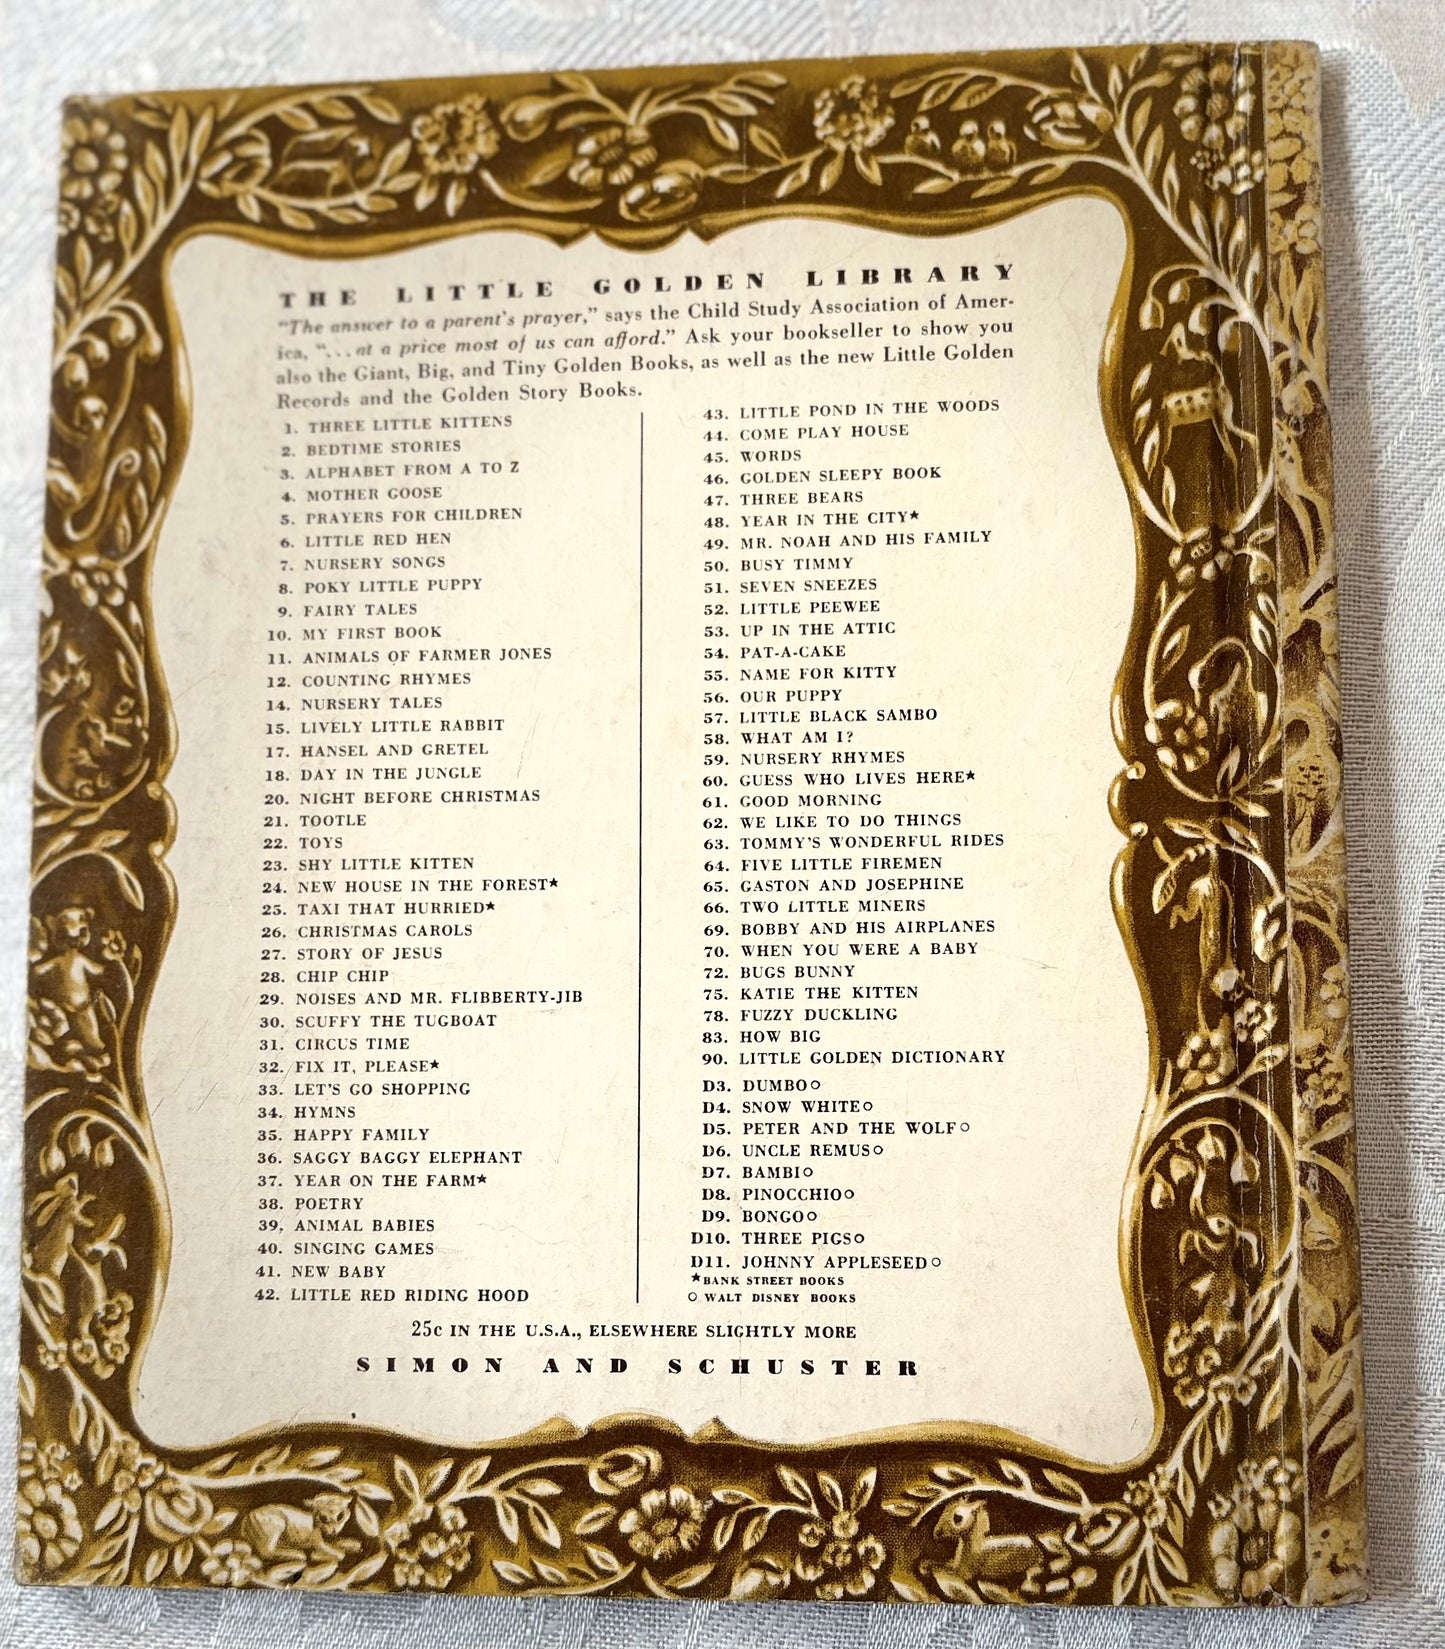 THE LITTLE GOLDEN LIBRARY
"The answer to a parent's prayer," says the Child Study Association of Amer-
ica, "...at a price most of us can afford." Ask your bookseller to show you
also the Giant, Big, and Tiny Golden Books, as well as the new Little Golden
Records and the Golden Story Books.
1. THREE LITTLE KITTENS
2. BEDTIME STORIES
3. ALPHABET FROM A TO Z
4. MOTHER GOOSE
5. PRAYERS FOR CHILDREN
6. LITTLE RED HEN
7. NURSERY SONGS
8. POKY LITTLE PUPPY
9. FAIRY TALES
10. MY FIRST BOOK
11. ANIMALS OF FARMER JONES
12. COUNTING RHYMES
14. NURSERY TALES
15. LIVELY LITTLE RABBIT
17. HANSEL AND GRETEL
18. DAY IN THE JUNGLE
20. NIGHT BEFORE CHRISTMAS
21. TOOTLE
22. TOYS
23. SHY LITTLE KITTEN
24. NEW HOUSE IN THE FOREST★
25. TAXI THAT HURRIED★
26. CHRISTMAS CAROLS
27. STORY OF JESUS
28. CHIP CHIP
29. NOISES AND MR. FLIBBERTY-JIB
30. SCUFFY THE TUGBOAT
31. CIRCUS TIME
32. FIX IT, PLEASE★
33. LET'S GO SHOPPING
34. HYMNS
35. HAPPY FAMILY
36. SAGGY BAGGY ELEPHANT
37. YEAR ON THE FARM★
38. POETRY
39. ANIMAL BABIES
40. SINGING GAMES
41. NEW BABY
42. LITTLE RED RIDING HOOD
43. LITTLE POND IN THE WOODS
44. COME PLAY HOUSE
45. WORDS
46. GOLDEN SLEEPY BOOK
47. THREE BEARS
48. YEAR IN THE CITY★
49. MR. NOAH AND HIS FAMILY
50. BUSY TIMMY
51. SEVEN SNEEZES
52. LITTLE PEEWEE
53. UP IN THE ATTIC
54. PAT-A-CAKE
55. NAME FOR KITTY
56. OUR PUPPY
57. LITTLE BLACK SAMBO
58. WHAT AM I?
59. NURSERY RHYMES
60. GUESS WHO LIVES HERE★
61. GOOD MORNING
62. WE LIKE TO DO THINGS
63. TOMMY'S WONDERFUL RIDES
64. FIVE LITTLE FIREMEN
65. GASTON AND JOSEPHINE
66. TWO LITTLE MINERS
69. BOBBY AND HIS AIRPLANES
70. WHEN YOU WERE A BABY
72. BUGS BUNNY
75. KATIE THE KITTEN
78. FUZZY DUCKLING
83. HOW BIG
90. LITTLE GOLDEN DICTIONARY
D3. DUMBO○
D4. SNOW WHITE○
D5. PETER AND THE WOLF○
D6. UNCLE REMUS○
D7. BAMBI○
D8. PINOCCHIO○
D9. BONGO○
D10. THREE PIGS○
D11. JOHNNY APPLESEED○
★BANK STREET BOOKS
○ WALT DISNEY BOOKS
25c IN THE U.S.A., ELSEWHERE SLIGHTLY MORE
SIMON AND SCHUSTER